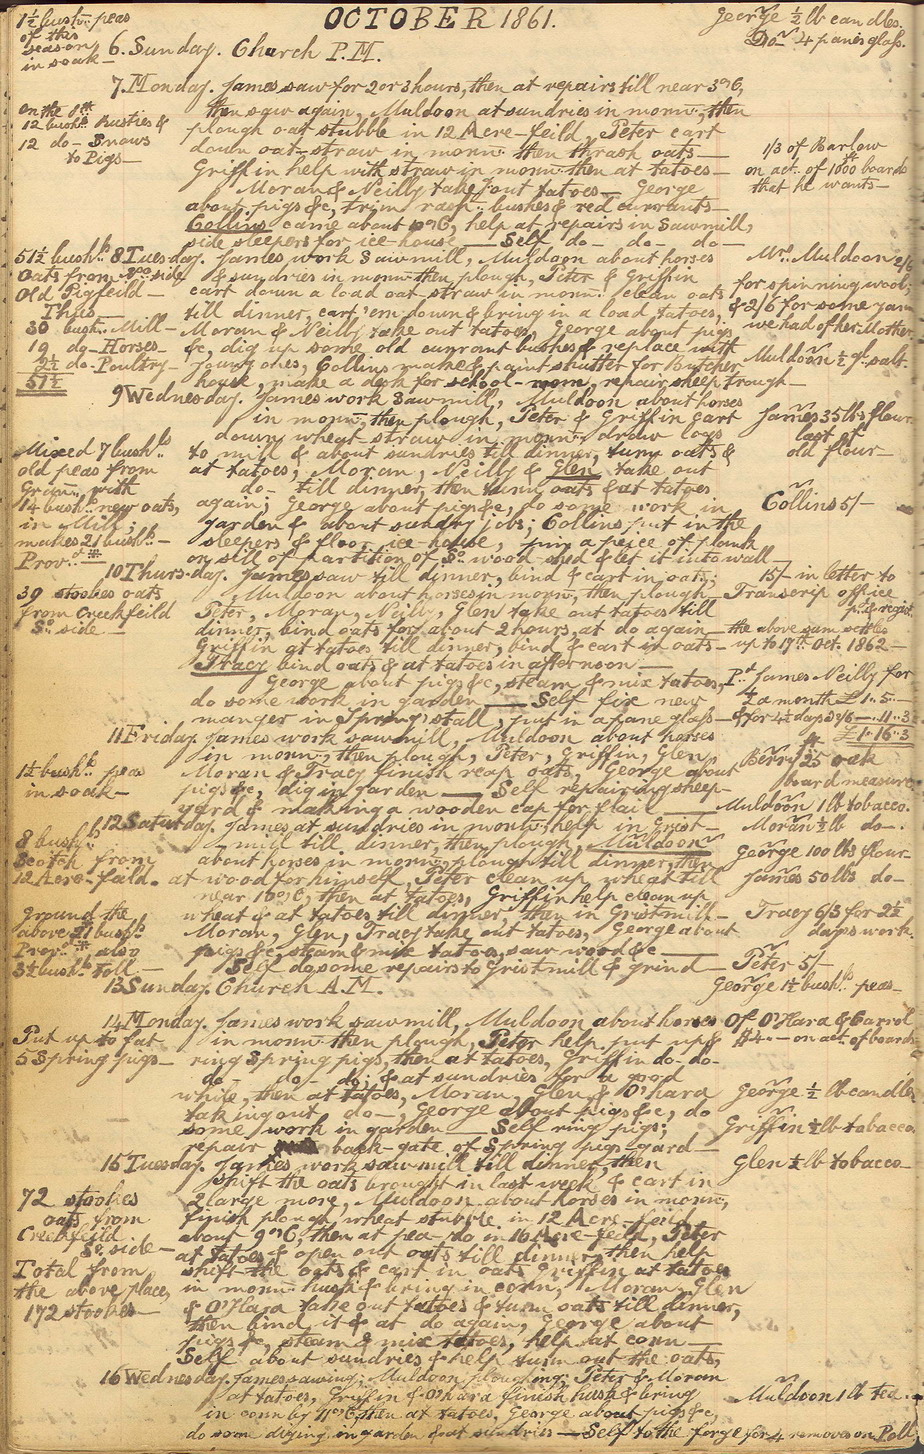 OCTOBER 1861.
1½ bush.. peas
of this
season
in soak —
George ½ lb candles.
Do — 4 panes glass.
6. Sunday. Church P.M.
7. Monday. James saw for 2 or 3 hours, then at repairs till near 3 o'C,
then saw again, Muldoon at sundries in morn:, then
plough oat stubble in 12 Acre-feild, Peter cart
down oat-straw in morn: then thrash oats —
Griffin help with straw in morn: then at tatoes —
Moran & Neilly take out tatoes — George
about pigs &c, trim rasp: bushes & red currants —
Collins came about o'C, help at repairs in Sawmill,
side sleepers for ice-house — Self do — do — do —
on the 8th
12 bush.. Rusties &
12 do — Snows
to Pigs —
1/3 of Barlow
on act. of 1000 boards
that he wants —
8 Tuesday. James work Sawmill, Muldoon about horses
& sundries in morn: then plough, Peter & Griffin
cart down a load oat-straw in morn: clean oats
till dinner, cart 'em down & bring in a load tatoes,
Moran & Neilly take out tatoes, George about pigs
&c, dig up some old currant bushes & replace with
young ones, Collins make & paint shutter for Butcher
house, make a desk for school-room, repair sheep trough —
51½ bush..
Oats from No. side
Old Pigfeild —
Thus —
30 bush.. Mill —
19 do — Horses —
2½ do — Poultry —
51½
Mrs. Muldoon 2/6
for spinning wool,
& 2/6 for some yarn
we had of her Mother
Muldoon ½ gl. salt.
9 Wednesday. James work Sawmill, Muldoon about horses
in morn:, then plough, Peter & Griffin cart
down wheat straw in morn: draw logs
to mill & about sundries till dinner, turn oats &
at tatoes, Moran, Neilly & Glen take out
do — till dinner, then turn oats & at tatoes
again, George about pigs &c, do some work in
garden & about sundry jobs; Collins put in the
sleepers & floor ice-house, pin a peice of plank
on sill of partition of So. wood-shed & let it into wall —
Mixed 7 bush..
old peas from
Gran.. with
14 bush.. new oats,
in Mill;
makes 21 bush.. —
Prov.d
James 35 lbs flour
last of
old flour —
Collins 5/-
10 Thursday. James saw till dinner, bind & cart in oats;
Muldoon about horses in morn:, then plough —
Peter, Moran, Neilly, Glen take out tatoes till
dinner, bind oats for about 2 hours, at do again —
Griffin at tatoes till dinner, bind & cart in oats —
Tracy bind oats & at tatoes in afternoon —
George about pigs &c, steam & mix tatoes,
do some work in garden — Self fix new
manger in Spring stall, put in a pane glass —
39 stookes oats
from Creekfeild
So. side —
15/- in letter to
Transcrip office
pd. & regist
the above sum settles
up to 17th Oct. 1862 —
Pd. James Neilly for
½ a month £1..5..—
& for 4½ days —..11..3
£1..16..3
11 Friday. James work sawmill, Muldoon about horses
in morn:, then plough, Peter, Griffin, Glen
Moran & Tracy finish reap oats, George about
pigs &c, dig in garden — Self repairing sheep-
yard & making a wooden cap for flail —
1½ bush.. peas
in soak —
Berry 25 ft oak
board measure
Muldoon 1 lb tobacco.
12 Saturday. James at sundries in morn: help in Grist-
mill till dinner, then plough, Muldoon
about horses in morn:, plough till dinner, then
at wood for himself, Peter clean up wheat till
near 10 o'C, then at tatoes, Griffin help clean up
wheat & at tatoes till dinner, then in Gristmill —
Moran, Glen, Tracy take out tatoes, George about
pigs &c, steam & mix tatoes, saw wood &c —
Self do some repairs to Gristmill & grind —
8 bush..
Scotch from
12 Acre-feild.
Ground the
above 21 bush..
Prov.d also
3½ bush.. toll —
Moran ½ lb do —.
George 100 lbs flour —
James 50 lbs do —
Tracy 6/3 for 2½
days work.
Peter 5/-
George 1½ bush.. peas —
13 Sunday. Church A.M.
14 Monday. James work sawmill, Muldoon about horses
in morn: then plough, Peter help put up &
ring Spring pigs, then at tatoes, Griffin do — do —
do — do — do; & at sundries for a good
while, then at tatoes, Moran, Glen & O'hara
taking out do —, George about pigs &c, do
some work in garden — Self ring pigs;
repair back-gate of Spring pigs-yard —
Put up to fat
5 Spring pigs —
Of O'Hara & Carrol
$4.— on act. of boards
George ½ lb candles
Griffin ½ lb tobacco.
Glen ½ lb tobacco —
15 Tuesday. James work sawmill till dinner, then
shift the oats brought in last week & cart in
2 large more, Muldoon about horses in morn:,
finish plough wheat stubble in 12 Acre-feild
about 9 o'C, then at pea — do in 16 Acre-feild, Peter
at tatoes & open out oats till dinner, then help
shift the oats & cart in oats, Griffin at tatoes
in morn: husk & bring in corn, Moran, Glen
& O'Hara take out tatoes & turn oats till dinner,
then bind it & at do again, George about
pigs &c, steam & mix tatoes, help at corn —
Self about sundries & help turn out the oats,
72 stookes
oats from
Creekfeild
So. side —
Total from
the above place,
172 stookes —
16 Wednesday. James sawing; Muldoon ploughing; Peter & Moran
at tatoes, Griffin & O'hara finish husk & bring
in corn by 11 o'C, then at tatoes, George about pigs &c,
do some digging in garden & at sundries — Self to the forge for 4 removes on Poll,
Muldoon 1 lb tea.